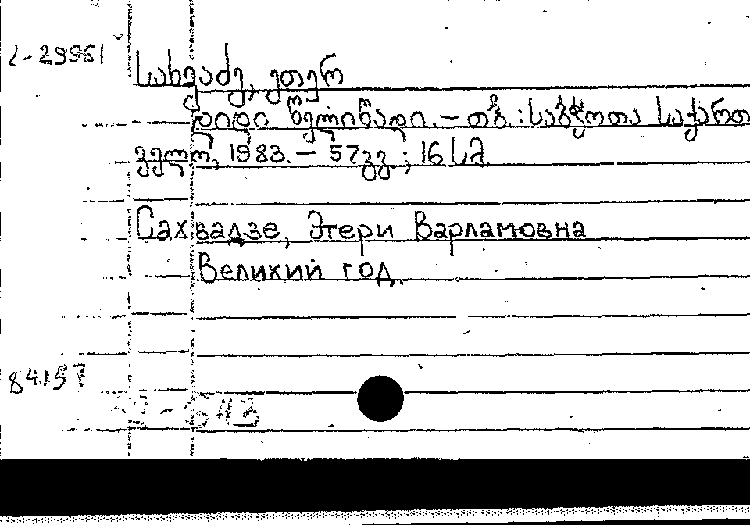 2-29961
სახვაძე, ეთერ
დიდი წელიწადი. – თბ. : საბჭოთა საქართ
ველო, 1983. – 57გვ ; 16 სმ.
Сахвадзе, Этери Варламовна
Великий год.
84.157